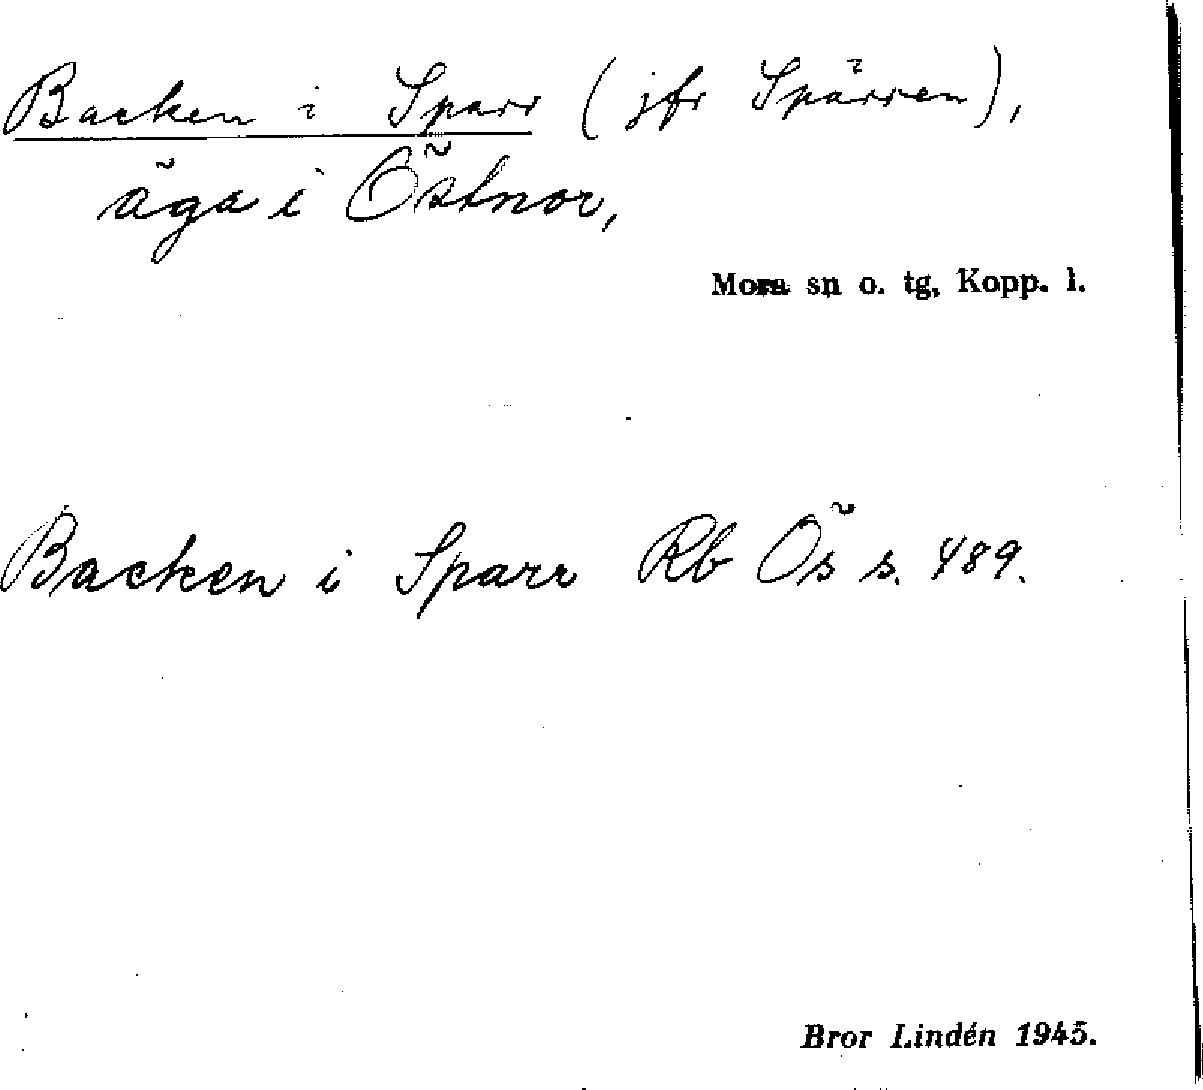 Backen i Sparr (jfr Spärren),
äga i Östnor,
Mora sn o. tg, Kopp. l.
Backen i Sparr Rb Ös s. 489.
Bror Lindén 1945.